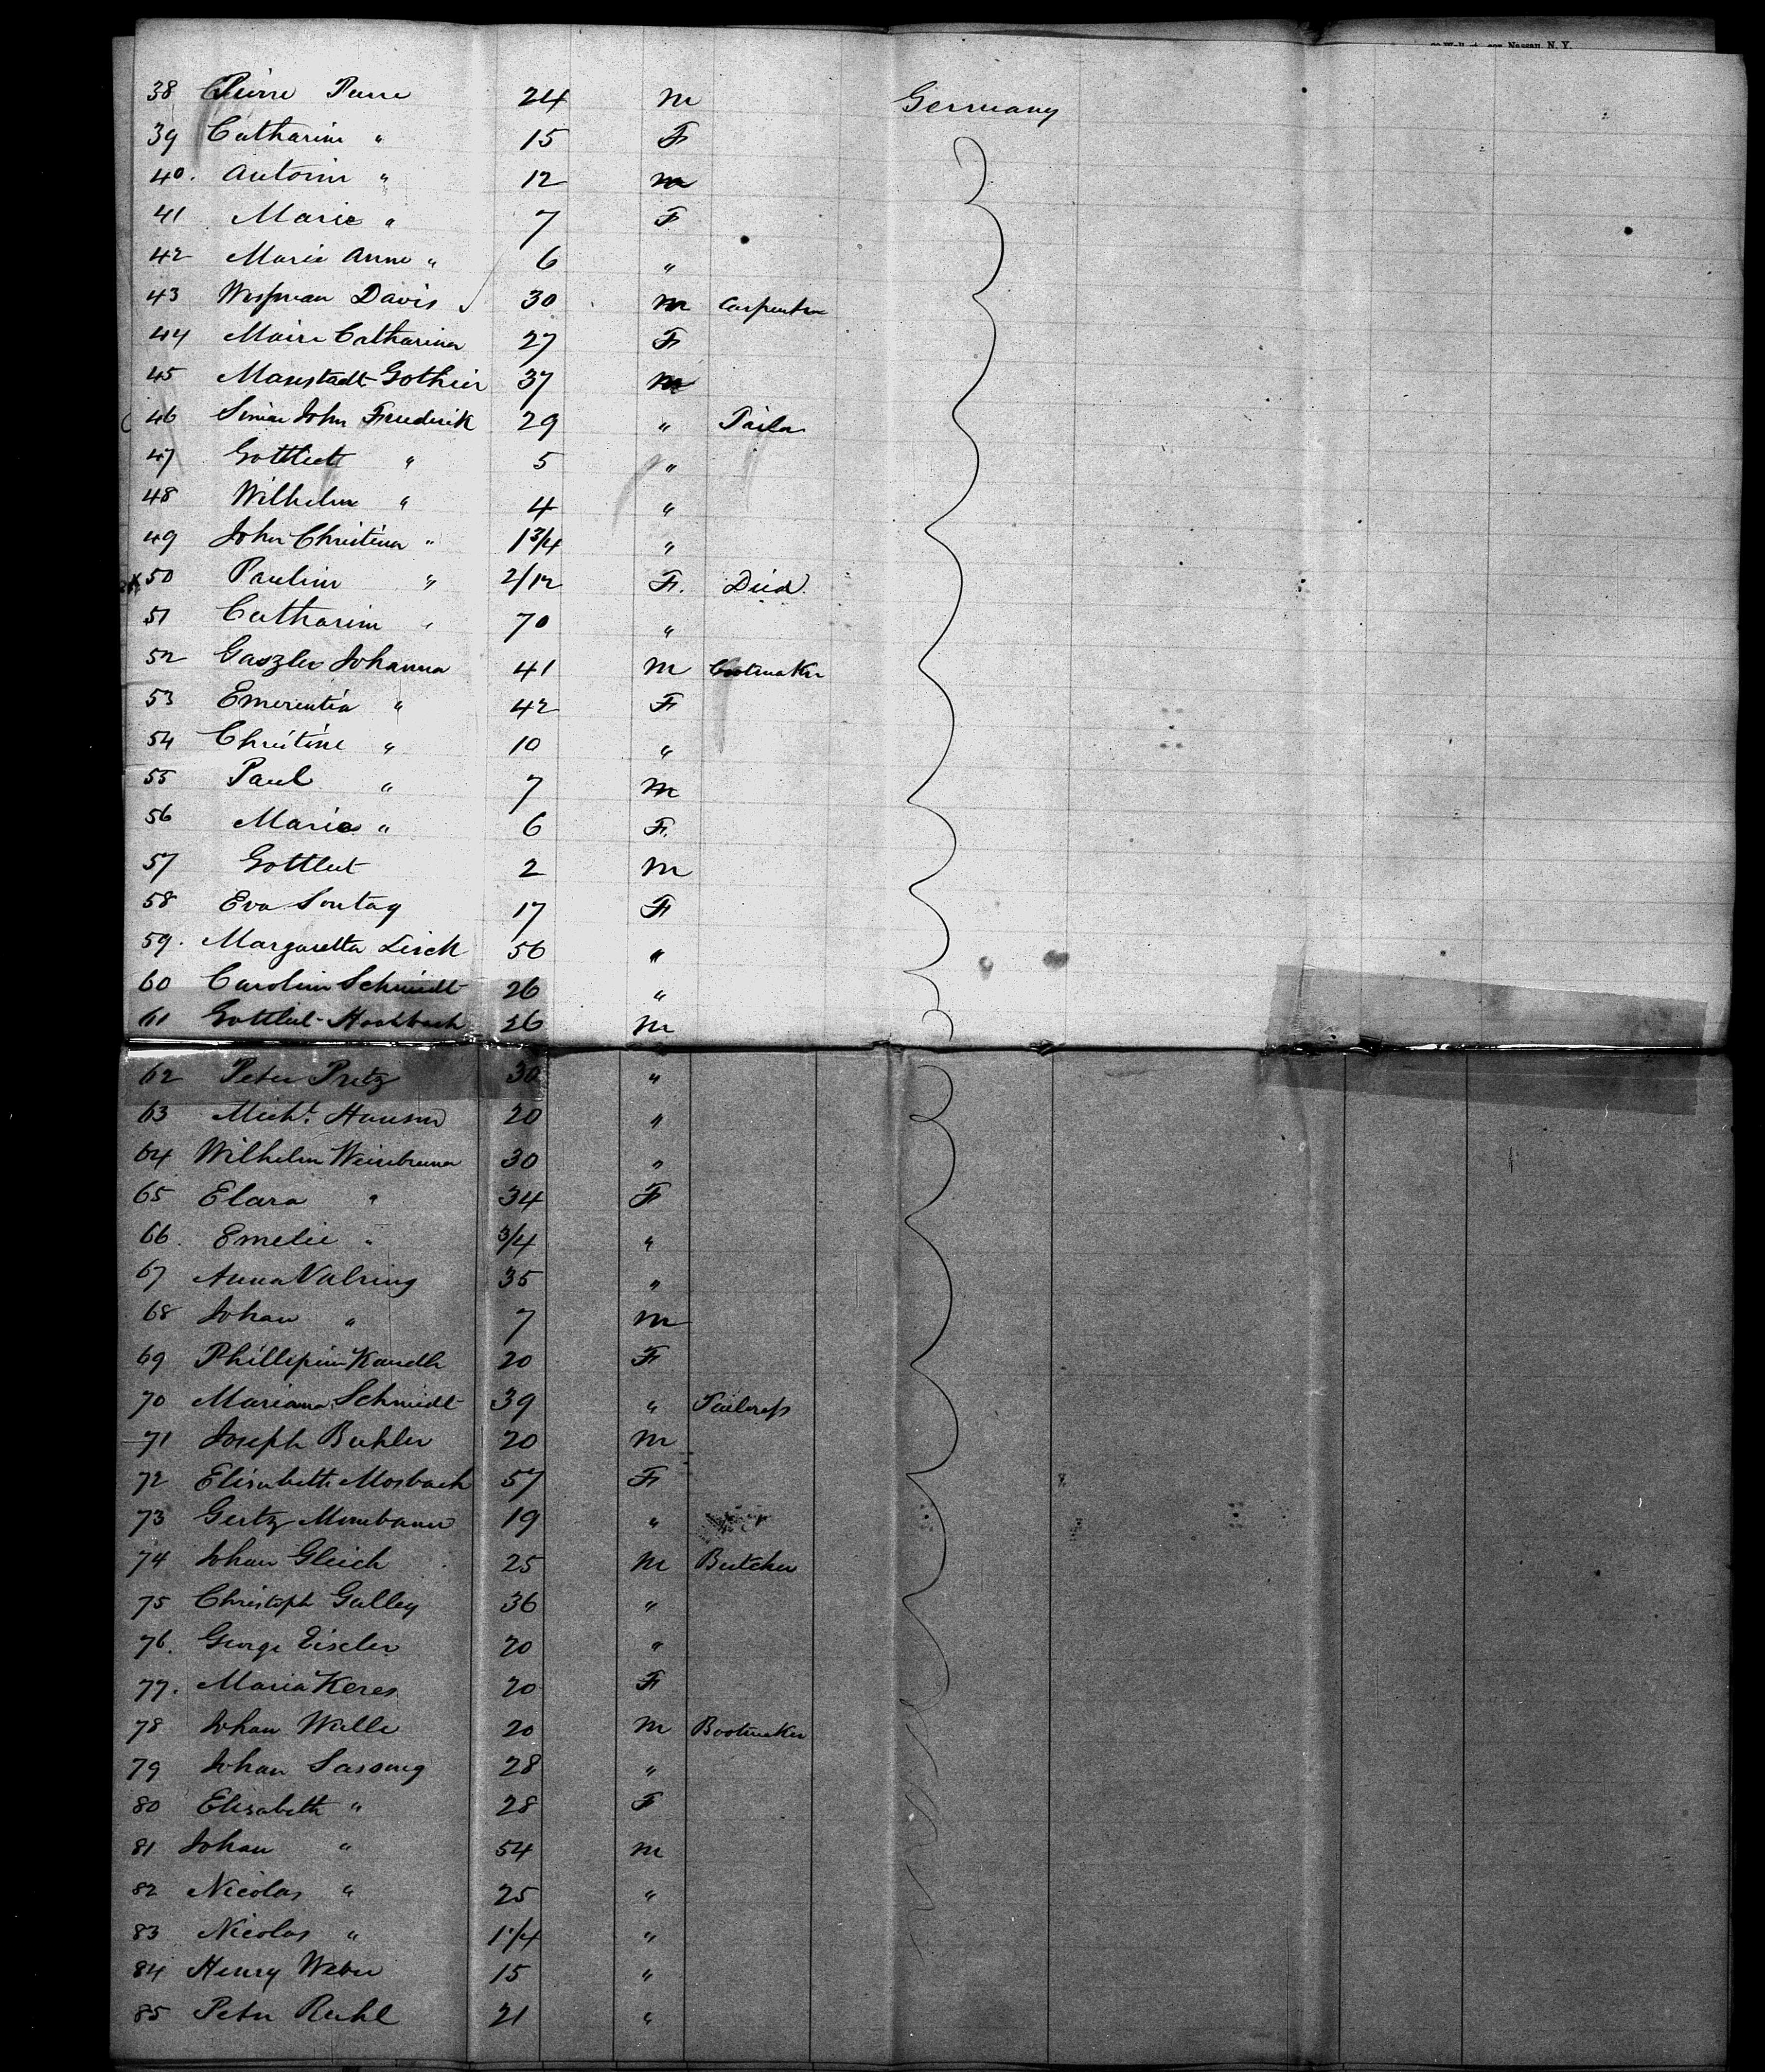 Nassau, N. Y.
38 Pierre Pierre 24 M Germany
39 Catharine " 15 F
40. Antoine " 12 M
41 Marie " 7 F
42 Marie Anne " 6 "
43 Davis 30 M Carpenter
44 Catharina 27 F
45 37 M
46 John Frederik 29 " Tailor
47 Gottlieb " 5 "
48 Wilhelm " 4 "
49 John Christian " 1 3/4 "
50 Pauline " 2/12 F. Died.
51 Catharine " 70 "
52 Gaszler Johanna 41 M Bootmaker
53 Emerentia " 42 F
54 Christine " 10 "
55 Paul " 7 M
56 Maria " 6 F.
57 Gottleib 2 M
58 Eva Sontag 17 F
59. Margaretta 56 "
60 Carolina Schmidt 26 "
61 Gottlieb 26 M
62 Peter Pretz 30 "
63 20 "
64 Wilhelm 30 "
65 Elara " 34 F
66. Emelie " 3/4 "
67 Anna 35 "
68 Johan " 7 M
69 20 F
70 Mariana Schmidt 39 " Tailoress
71 Joseph Buhler 20 M
72 Elisabeth Mosbach 57 F
73 19 "
74 Johan Gleich 25 M Butcher
75 Christoph Galley 36 "
76. George Eisler 20 "
77. Maria Keres 20 F
78 Johan Wille 20 M Bootmaker
79 Johan 28 "
80 Elisabeth " 28 F
81 Johan " 54 M
82 Nicolas " 25 "
83 Nicolas " 1 1/4 "
84 Henry Weber 15 "
85 Peter Ruhl 21 "